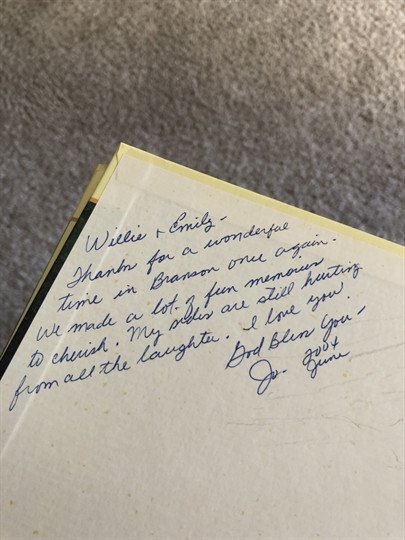 Willie + Emily -
Thanks for a wonderful
time in Branson once again.
We made a lot of fun memories
to cherish. My sides are still hurting
from all the laughter. I love you
God Bless You -
Jo.
June